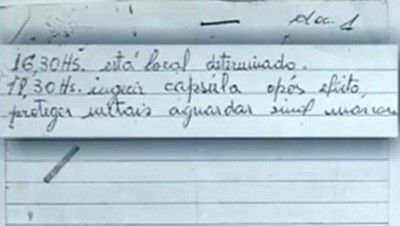 doc. 1
16,30Hs. está local determinado.
18,30Hs. ingerir capsúla após efeito,
proteger metais aguardar sinal mascara